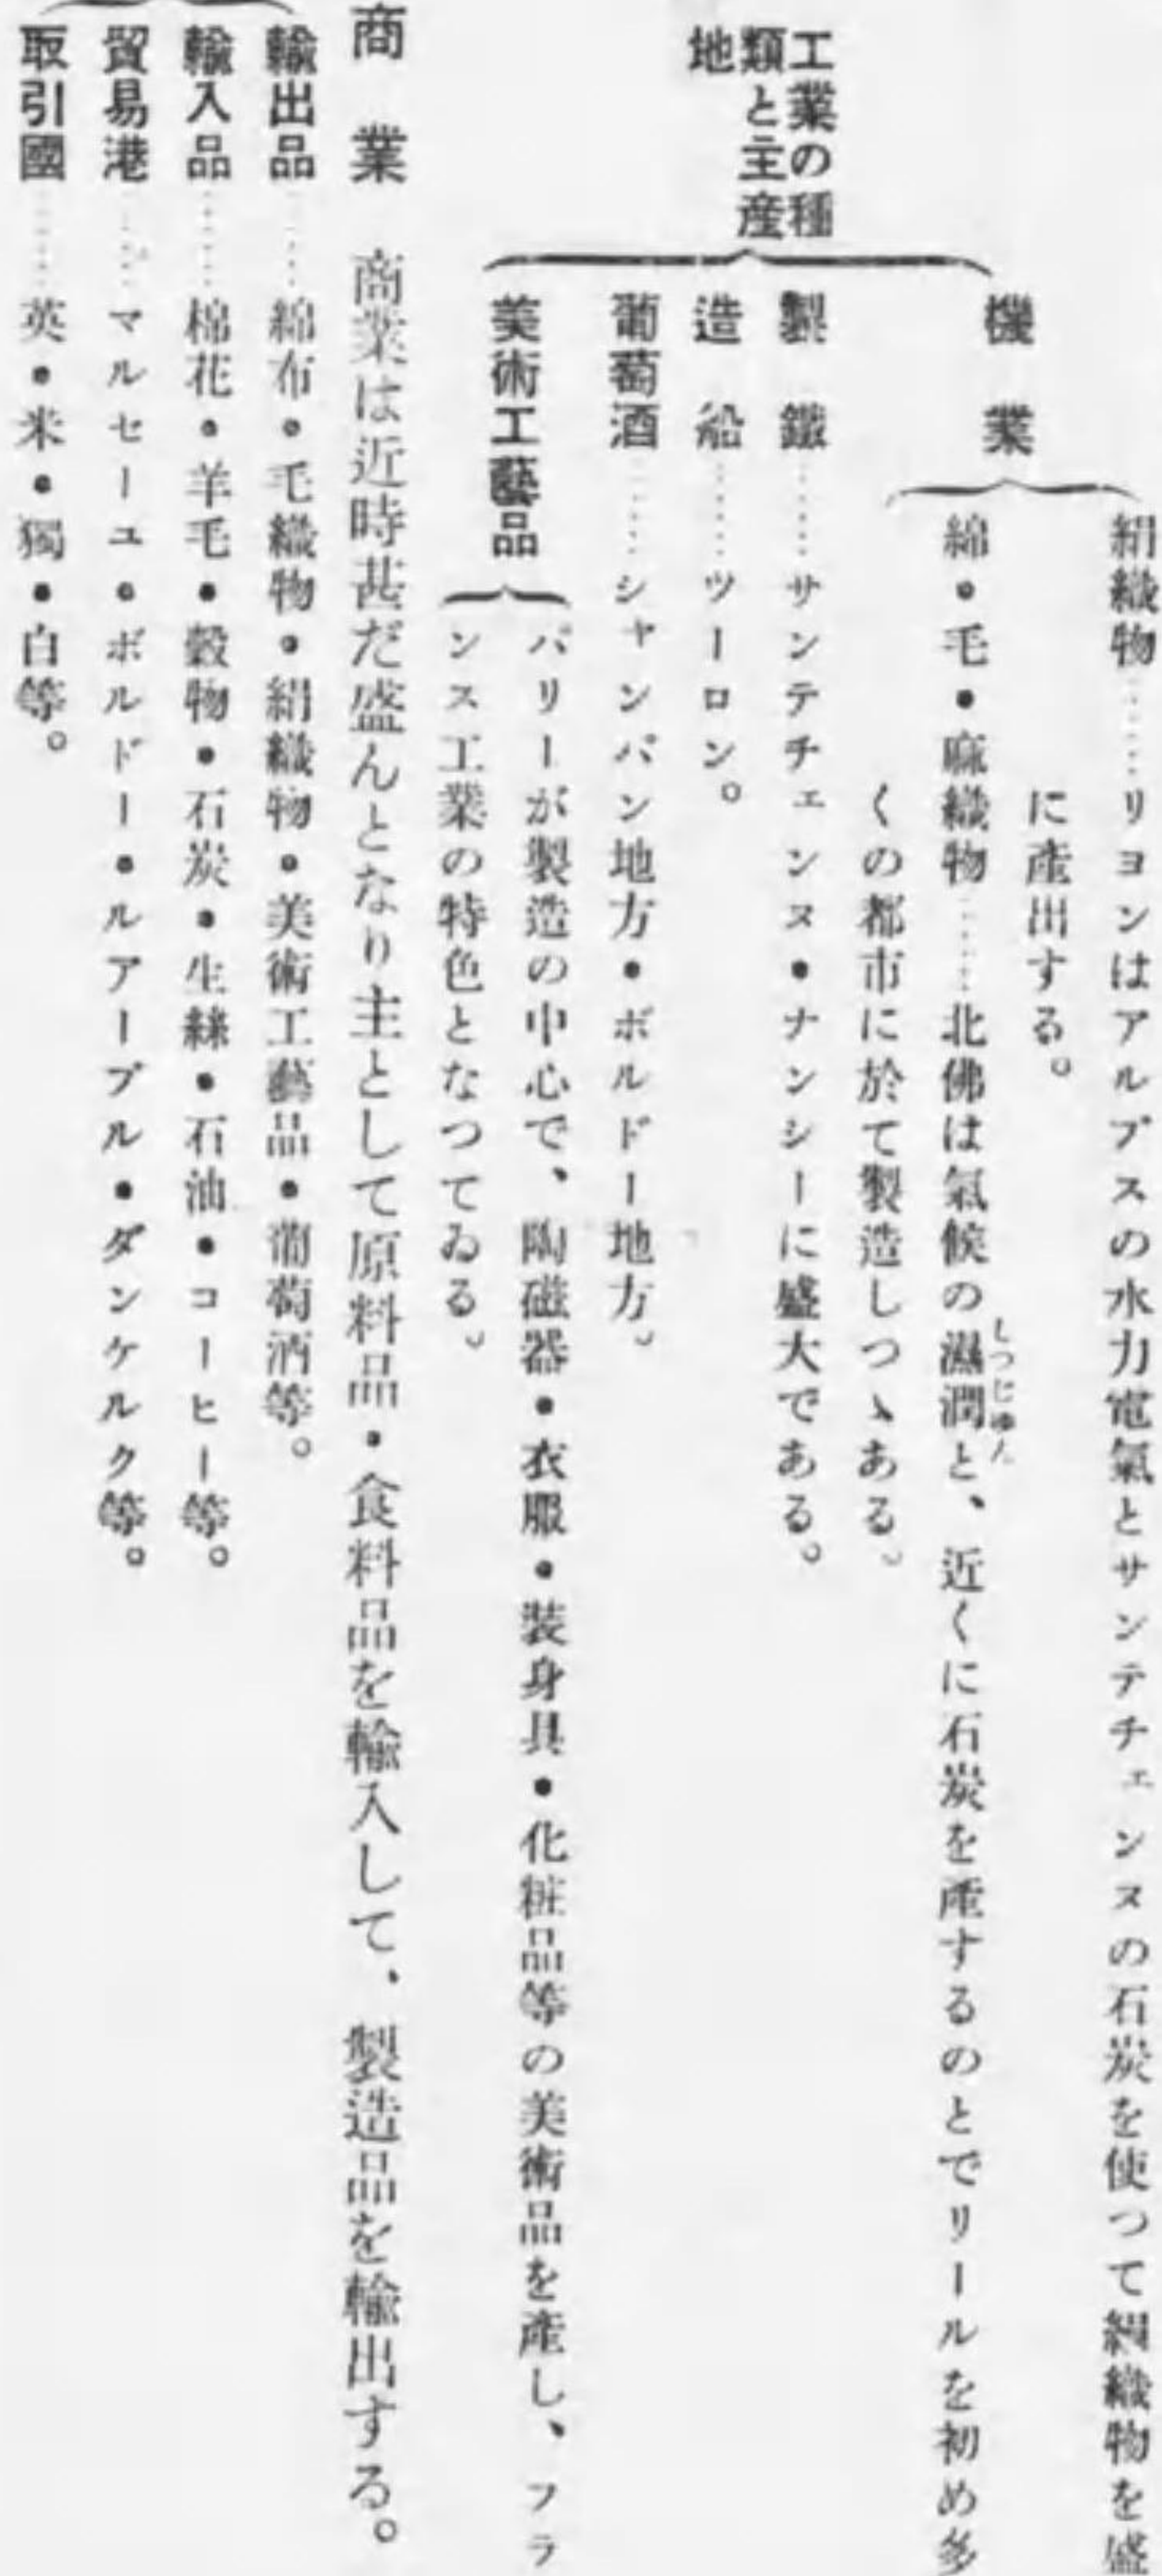 工業の種
類と主産
地
機業
絹織物……リヨンはアルプスの水力電氣とサンテチェンヌの石炭を使つて絹織物を盛
に産出する。
綿・毛・麻織物……北佛は氣候の濕潤と、近くに石炭を産するのとでリールを初め多
しつじゆん
くの都市に於て製造しつゝある。
製鐵……サンテチェンヌ・ナンシーに盛大である。
造船……ツーロン。
葡萄酒……シャンパン地方・ボルドー地方。
美術工藝品
パリーが製造の中心で、陶磁器・衣服・装身具・化粧品等の美術品を産し、フラ
ンス工業の特色となつてゐる。
商業 商業は近時甚だ盛んとなり主として原料品・食料品を輸入して、製造品を輸出する。
輸出品……綿布・毛織物・絹織物・美術工藝品・葡萄酒等。
輸入品……棉花・羊毛・穀物・石炭・生絲・石油・コーヒー等。
貿易港……マルセーユ・ボルドー・ルアーブル・ダンケルク等。
取引國……英・米・獨・白等。